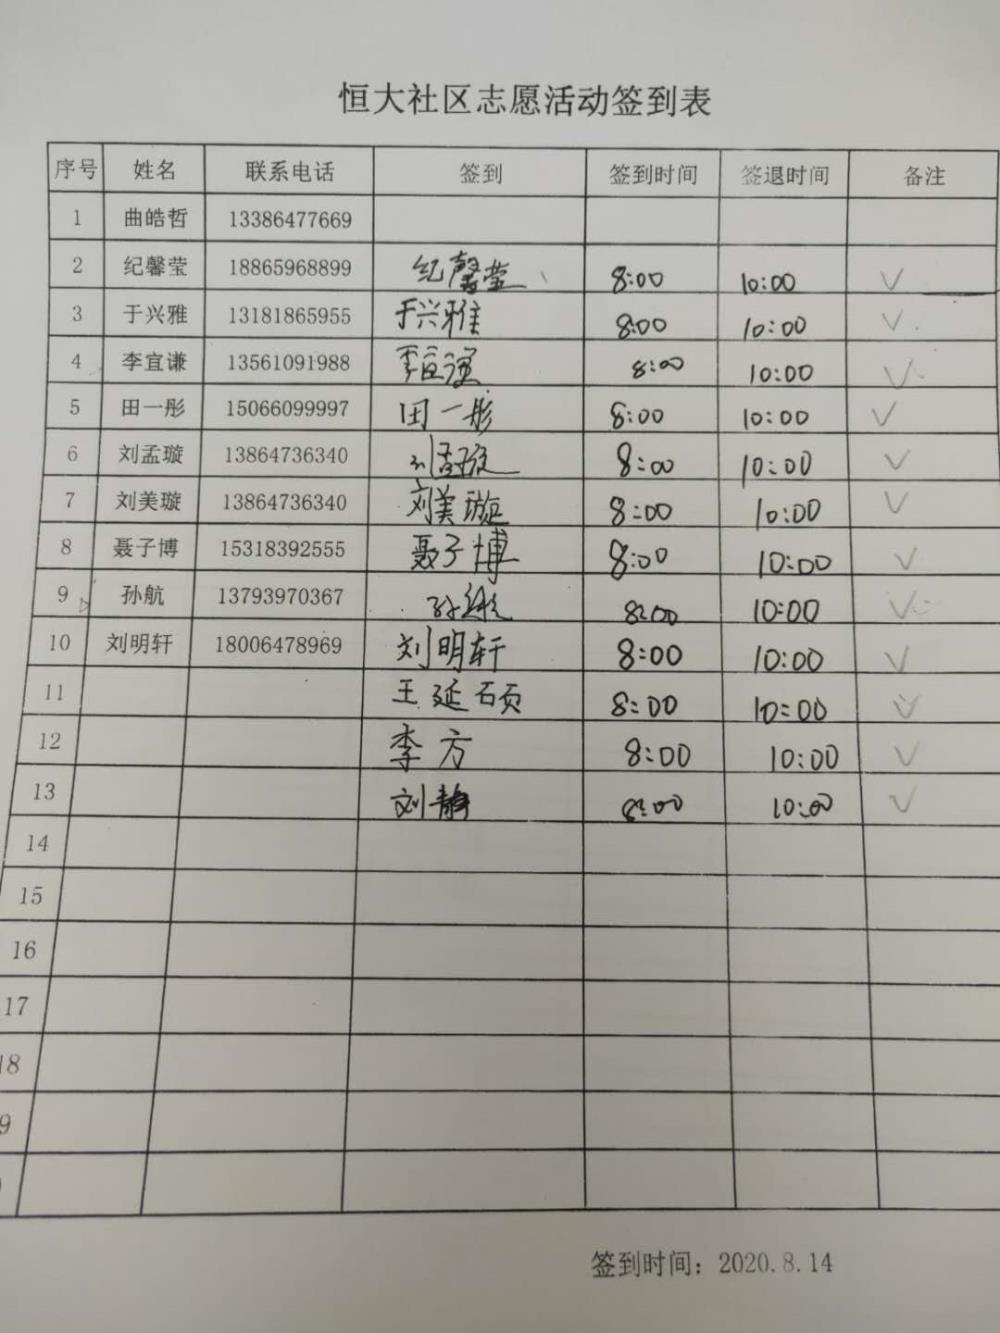 恒大社区志愿活动签到表
序号 姓名 联系电话 签到 签到时间 签退时间 备注
1 曲皓哲 13386477669
2 纪馨莹 18865968899 纪馨莹 8:00 10:00 √
3 于兴雅 13181865955 于兴雅 8:00 10:00 √
4 李宜谦 13561091988 李宜谦 8:00 10:00 √
5 田一彤 15066099997 田一彤 8:00 10:00 √
6 刘孟璇 13864736340 刘孟璇 8:00 10:00 √
7 刘美璇 13864736340 刘美璇 8:00 10:00 √
8 聂子博 15318392555 聂子博 8:00 10:00 √
9 孙航 13793970367 孙航 8:00 10:00 √
10 刘明轩 18006478969 刘明轩 8:00 10:00 √
11 王延硕 8:00 10:00 √
12 李方 8:00 10:00 √
13 刘静 8:00 10:00 √
14
15
16
17
18
9
签到时间：2020.8.14